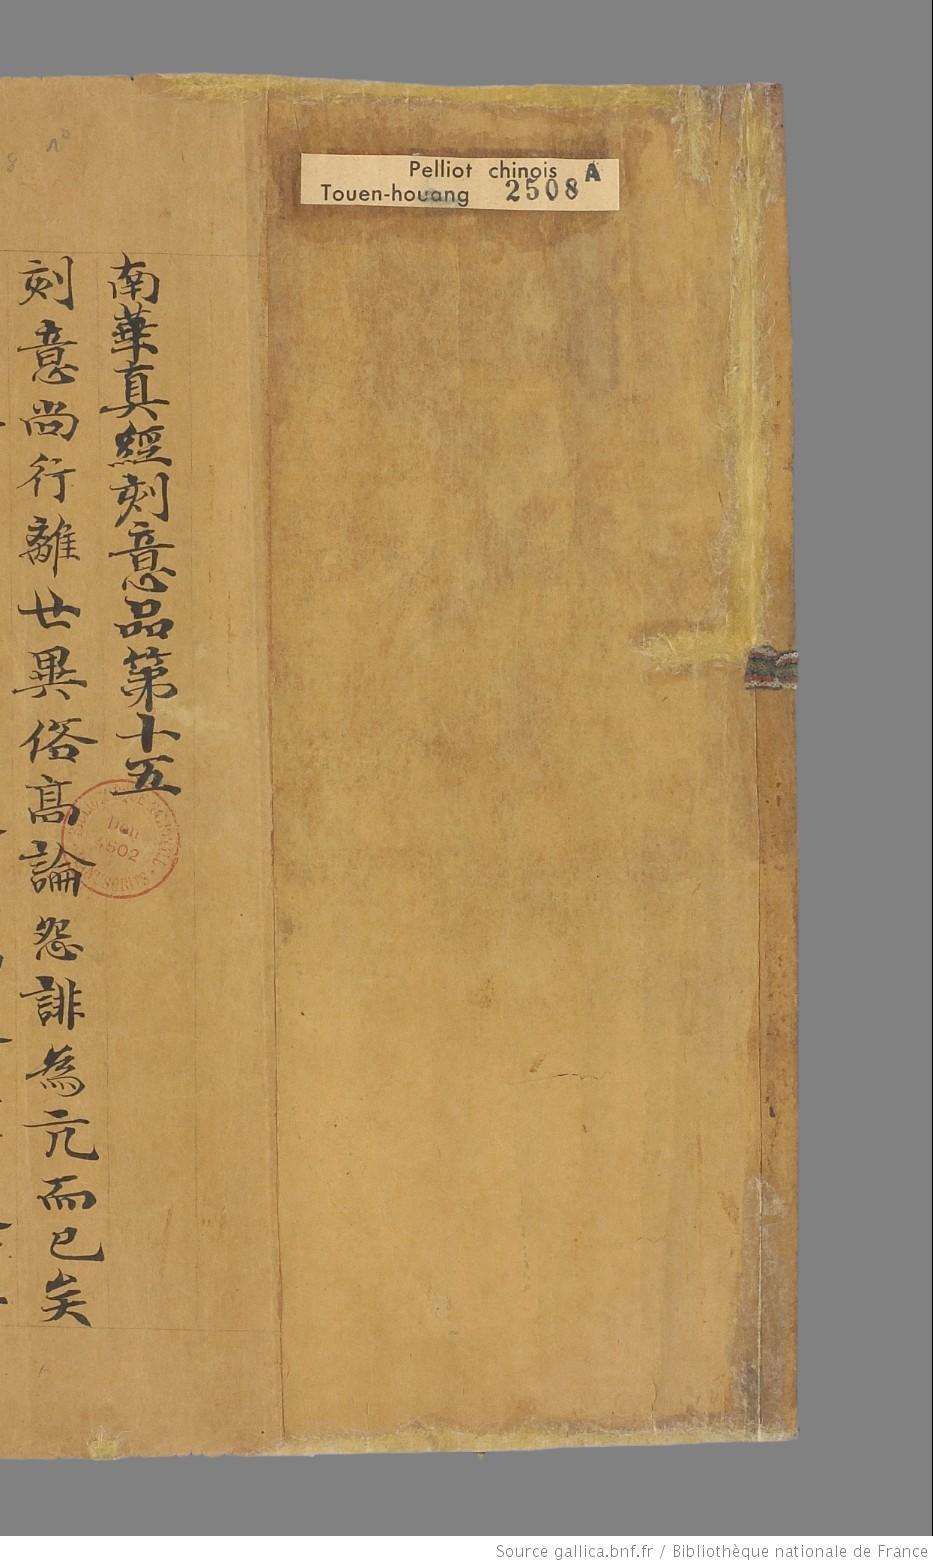 Pelliot chinois A
Touen-houang 2508
南華真經刻意品第十五
刻意尚行離世異俗高論怨誹為亢而已矣
Don
4502
Source gallica.bnf.fr / Bibliothèque nationale de France